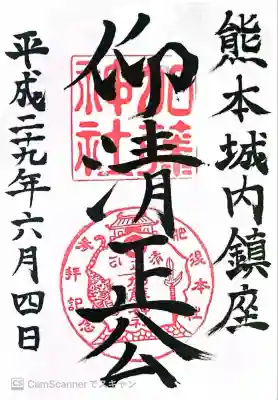 熊本城内鎮座
仰清正公
加藤神社
平成二十九年六月四日
参拝記念
CS CamScannerでスキャン